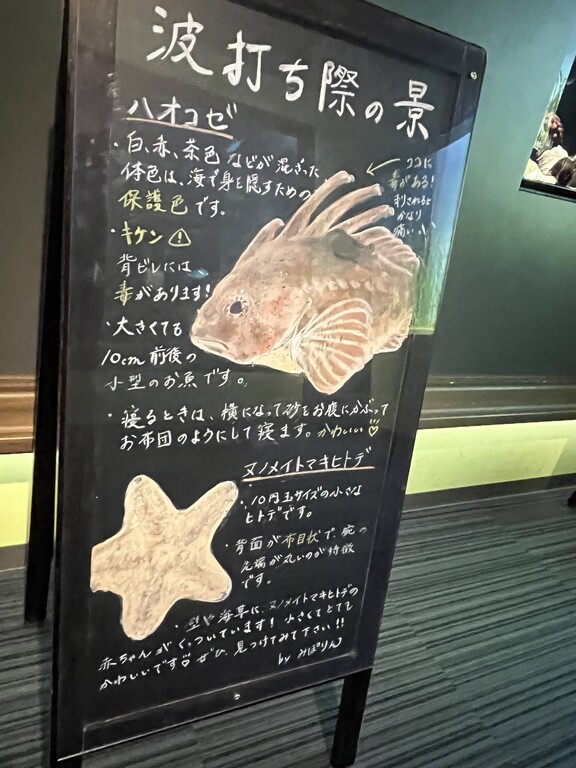 波打ち際の景
ハオコゼ
・白、赤、茶色などが混ざった
体色は、海で身を隠すための
保護色です。
・キケン⚠
背ビレには
毒があります!
ココに
毒がある!
刺されると
かなり
痛い
・大きくても
10cm前後の
小型のお魚です。
・寝るときは、横になって砂をお腹にかぶって
お布団のようにして寝ます。かわいい♡
ヌノメイトマキヒトデ
・10円玉サイズの小さな
ヒトデです。
・背面が布目状で、腕の
先端が丸いのが特徴
です。
・壁や海草に、ヌノメイトマキヒトデの
赤ちゃんがくっついています!小さくてとても
かわいいです♡ぜひ、見つけてみて下さい!!
by みぽりん